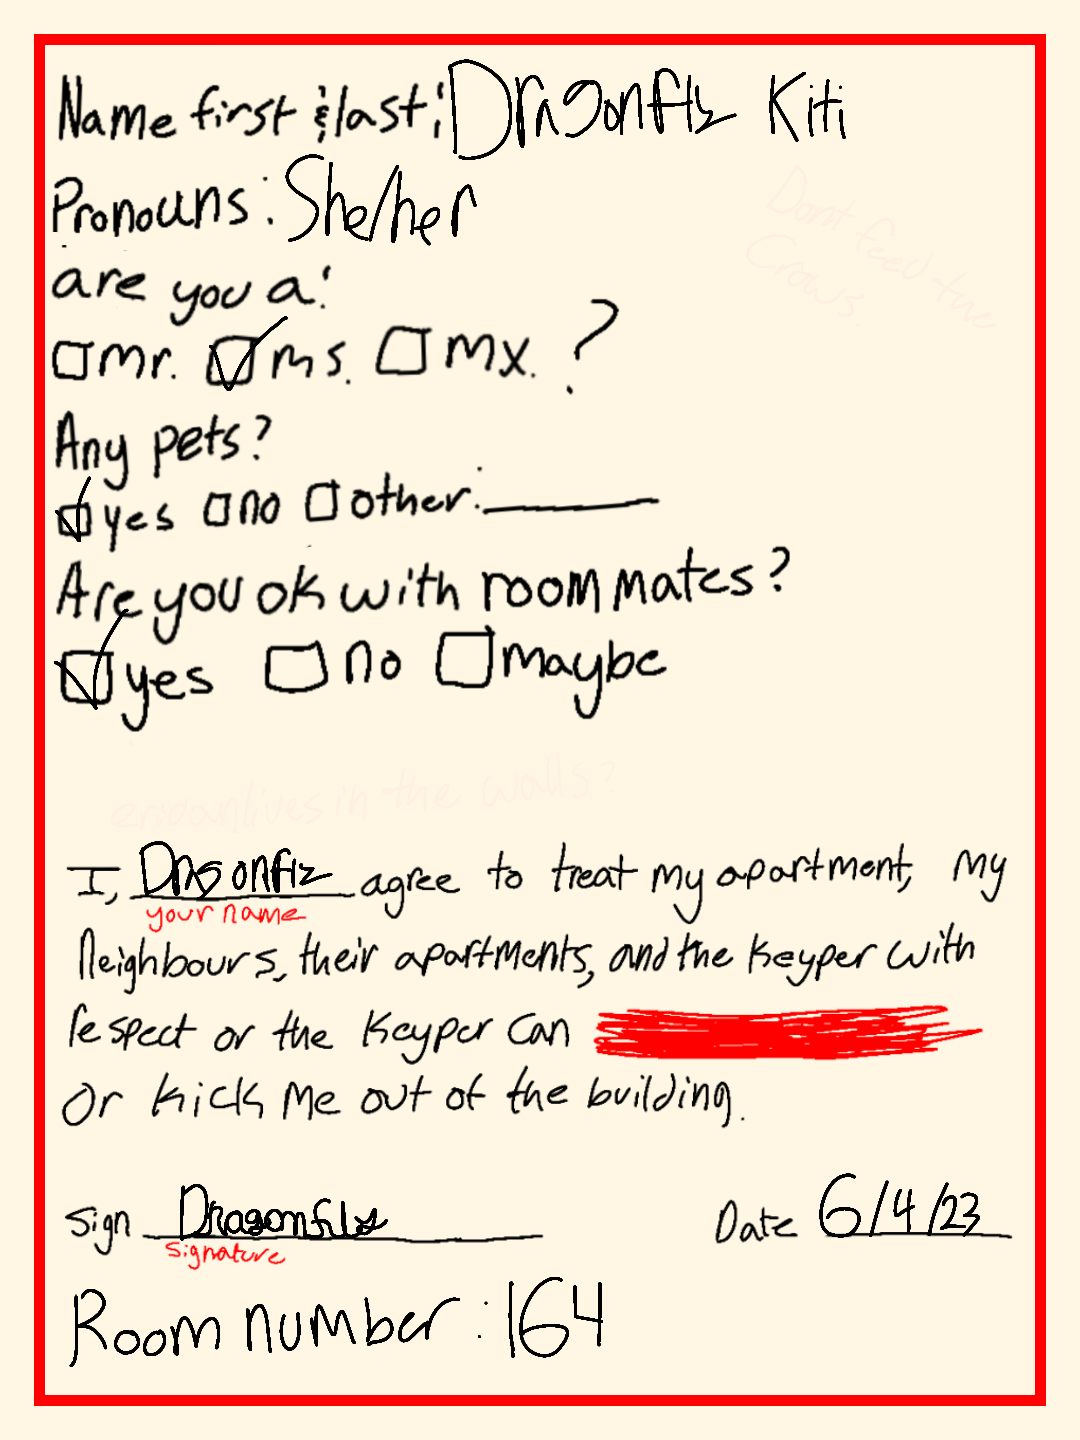 Name first & last: Dragonfly Kiti
Pronouns: She/her
Dont feed the
Crows.
are you a:
mr. ms. mx. ?
Any pets?
yes no other:
Are you ok with roommates?
yes no maybe
lives in the walls?
I, Dragonfly agree to treat my apartment, my
your name
Neighbours, their apartments, and the Keyper with
respect or the Keyper can
Or kick me out of the building.
Sign Dragonfly Date 6/4/23
signature
Room number: 164